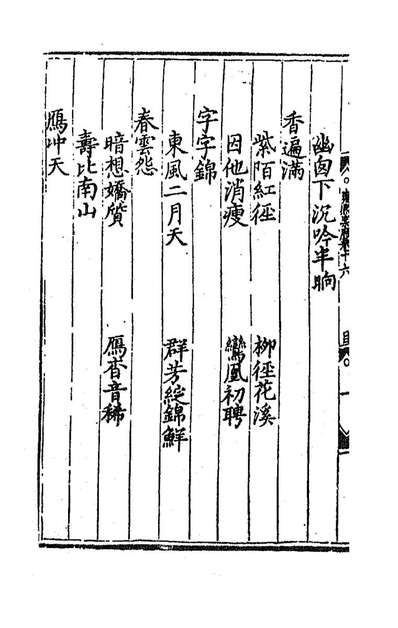 幽囱下沉吟半晌
香遍滿
紫陌紅徑　柳徑花溪
因他消瘦　鸞凰初聘
字字錦
東風二月天　群芳綻錦鮮
春雲怨
暗想嬌質　鴈杳音稀
壽比南山
鴈冲天